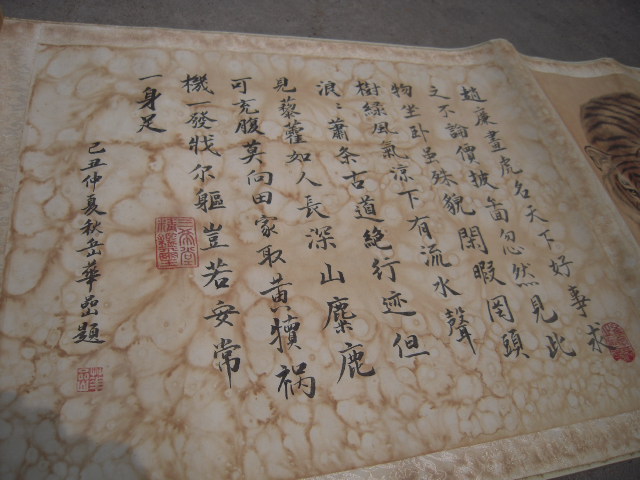 趙廉畫虎名天下好事求
之不論價披圖忽然見此
物坐卧虽殊貌閑暇罔頭
樹緑風氣凉下有流水聲
浪〻蕭条古道絶行迹但
見藜藿如人長深山麋鹿
可充腹莫向田家取黄犢祸
機一發戕尔軀豈若安常
一身足
己丑仲夏秋岳華嵒題